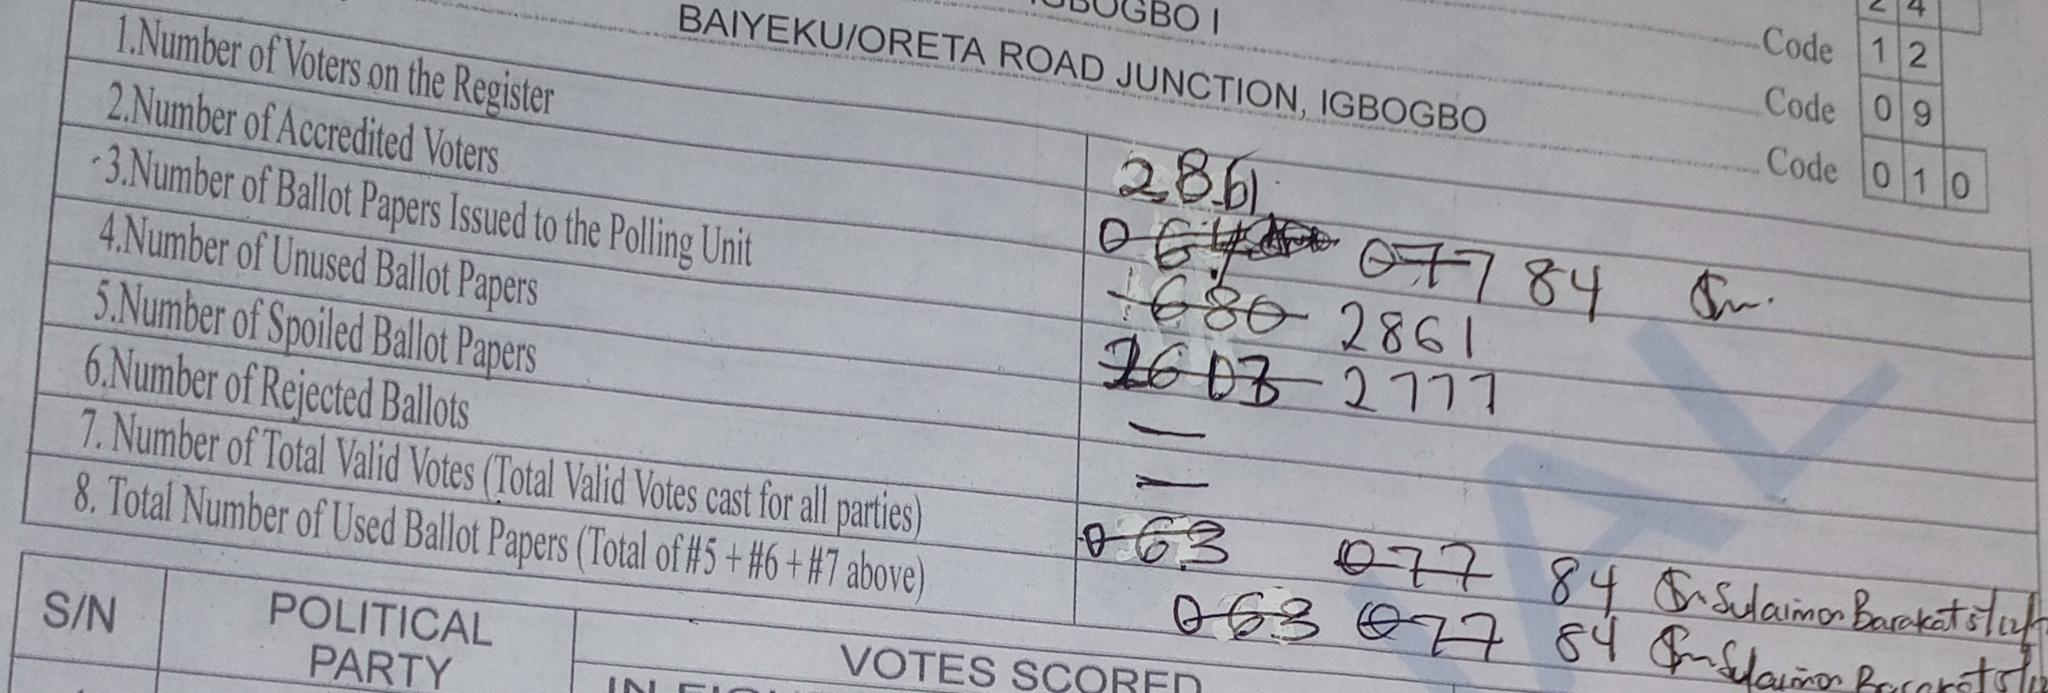 IGBOGBO I
BAIYEKU/ORETA ROAD JUNCTION, IGBOGBO
24
Code 12
Code 09
Code 010
1.Number of Voters on the Register 2861
2.Number of Accredited Voters 064 077 84
3.Number of Ballot Papers Issued to the Polling Unit 680 2861
4.Number of Unused Ballot Papers 2603 2777
5.Number of Spoiled Ballot Papers —
6.Number of Rejected Ballots —
7. Number of Total Valid Votes (Total Valid Votes cast for all parties) 063 077 84 Sulaimon Barakat
8. Total Number of Used Ballot Papers (Total of #5 + #6 + #7 above) 063 077 84 Sulaimon Barakat
S/N
POLITICAL PARTY
VOTES SCORED